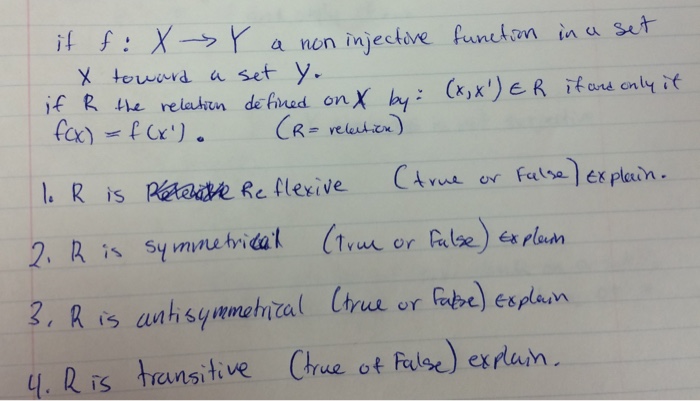 if f : X → Y a non injective function in a set
X toward a set Y.
if R the relation defined on X by : (x,x') ∈ R if and only if
f(x) = f(x'). (R = relation)
1. R is Reflexive (true or False) explain.
2. R is symmetrical (True or False) explain
3. R is antisymmetrical (true or False) explain
4. R is transitive (true of False) explain.